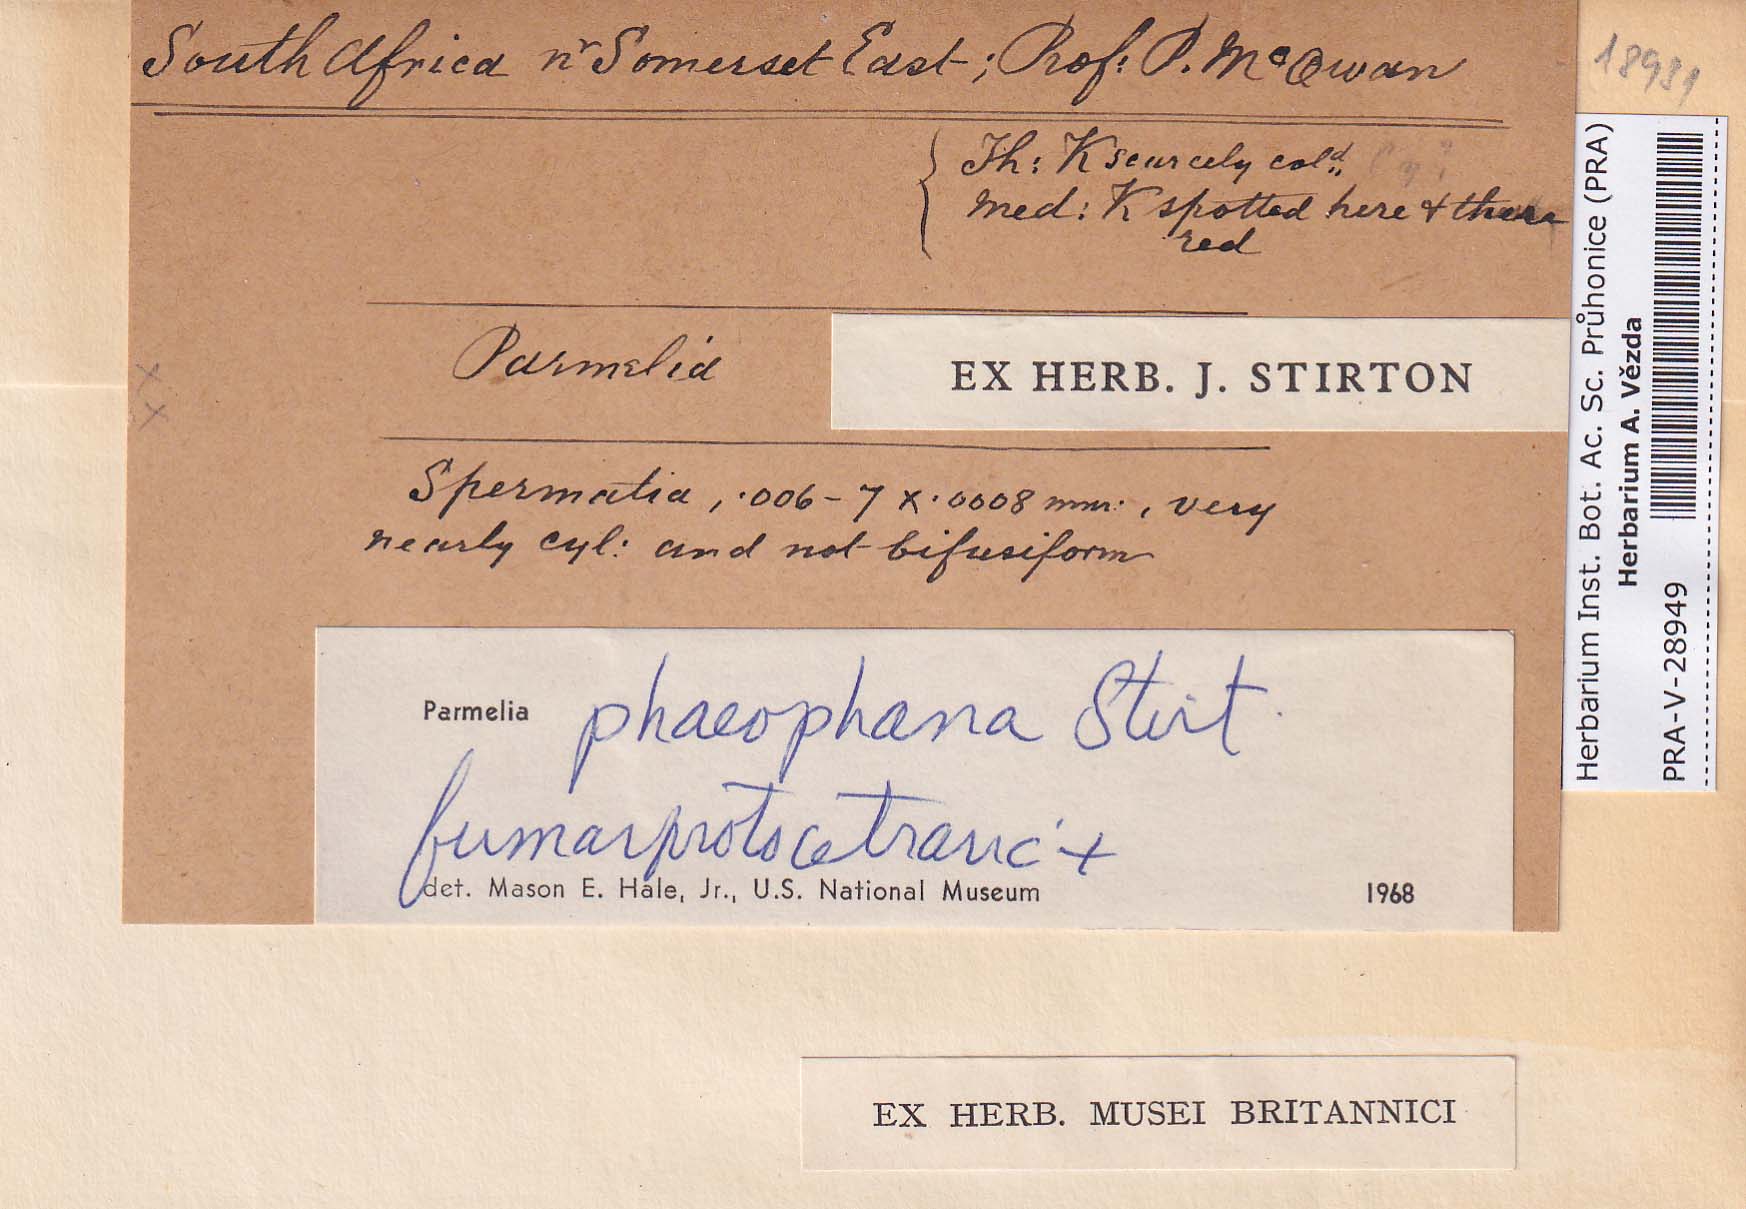 South Africa nr Somerset East; Prof: P. McOwan
18981
Th: K scarcely cold.
med: K spotted here & there
red
Parmelia
EX HERB. J. STIRTON
Spermatia, .006-7 x .0008 mm:, very
nearly cyl: and not bifusiform
Parmelia phaeophana Stirt.
fumarprotocetraric +
det. Mason E. Hale, Jr., U.S. National Museum 1968
EX HERB. MUSEI BRITANNICI
Herbarium Inst. Bot. Ac. Sc. Průhonice (PRA)
Herbarium A. Vězda
PRA-V-28949